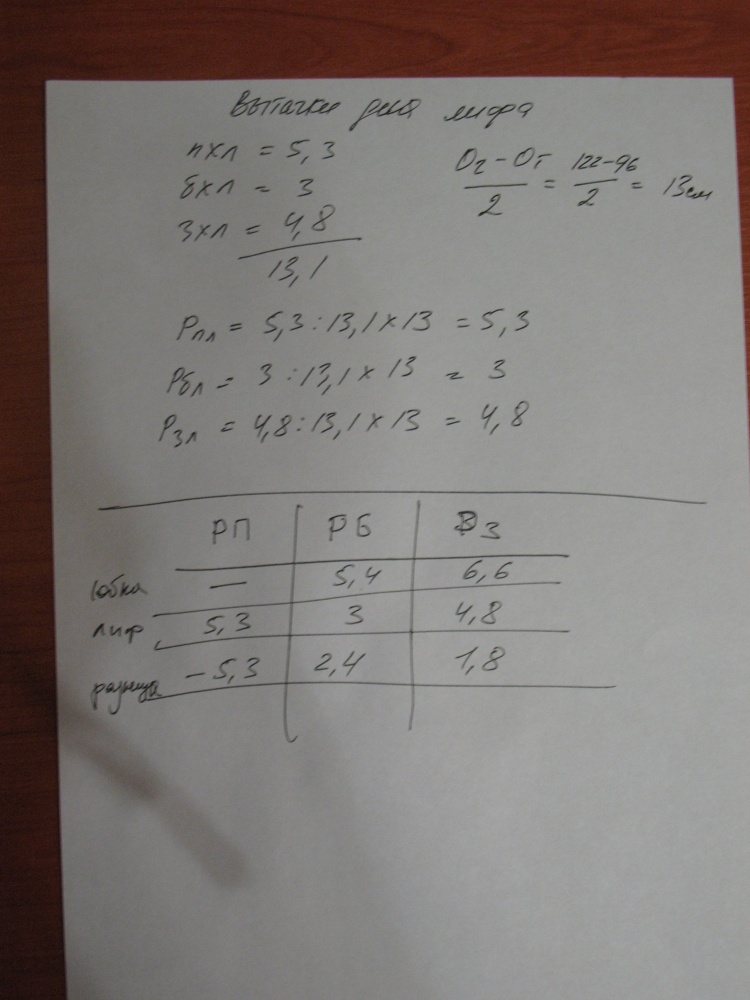 Вытачки для лифа
пхл = 5,3
бхл = 3
зхл = 4,8
13,1
Ог-От / 2 = 122-96 / 2 = 13см
Рпл = 5,3:13,1х13 = 5,3
Рбл = 3:13,1х13 = 3
Рзл = 4,8:13,1х13 = 4,8
РП РБ РЗ
юбка — 5,4 6,6
лиф 5,3 3 4,8
разница -5,3 2,4 1,8